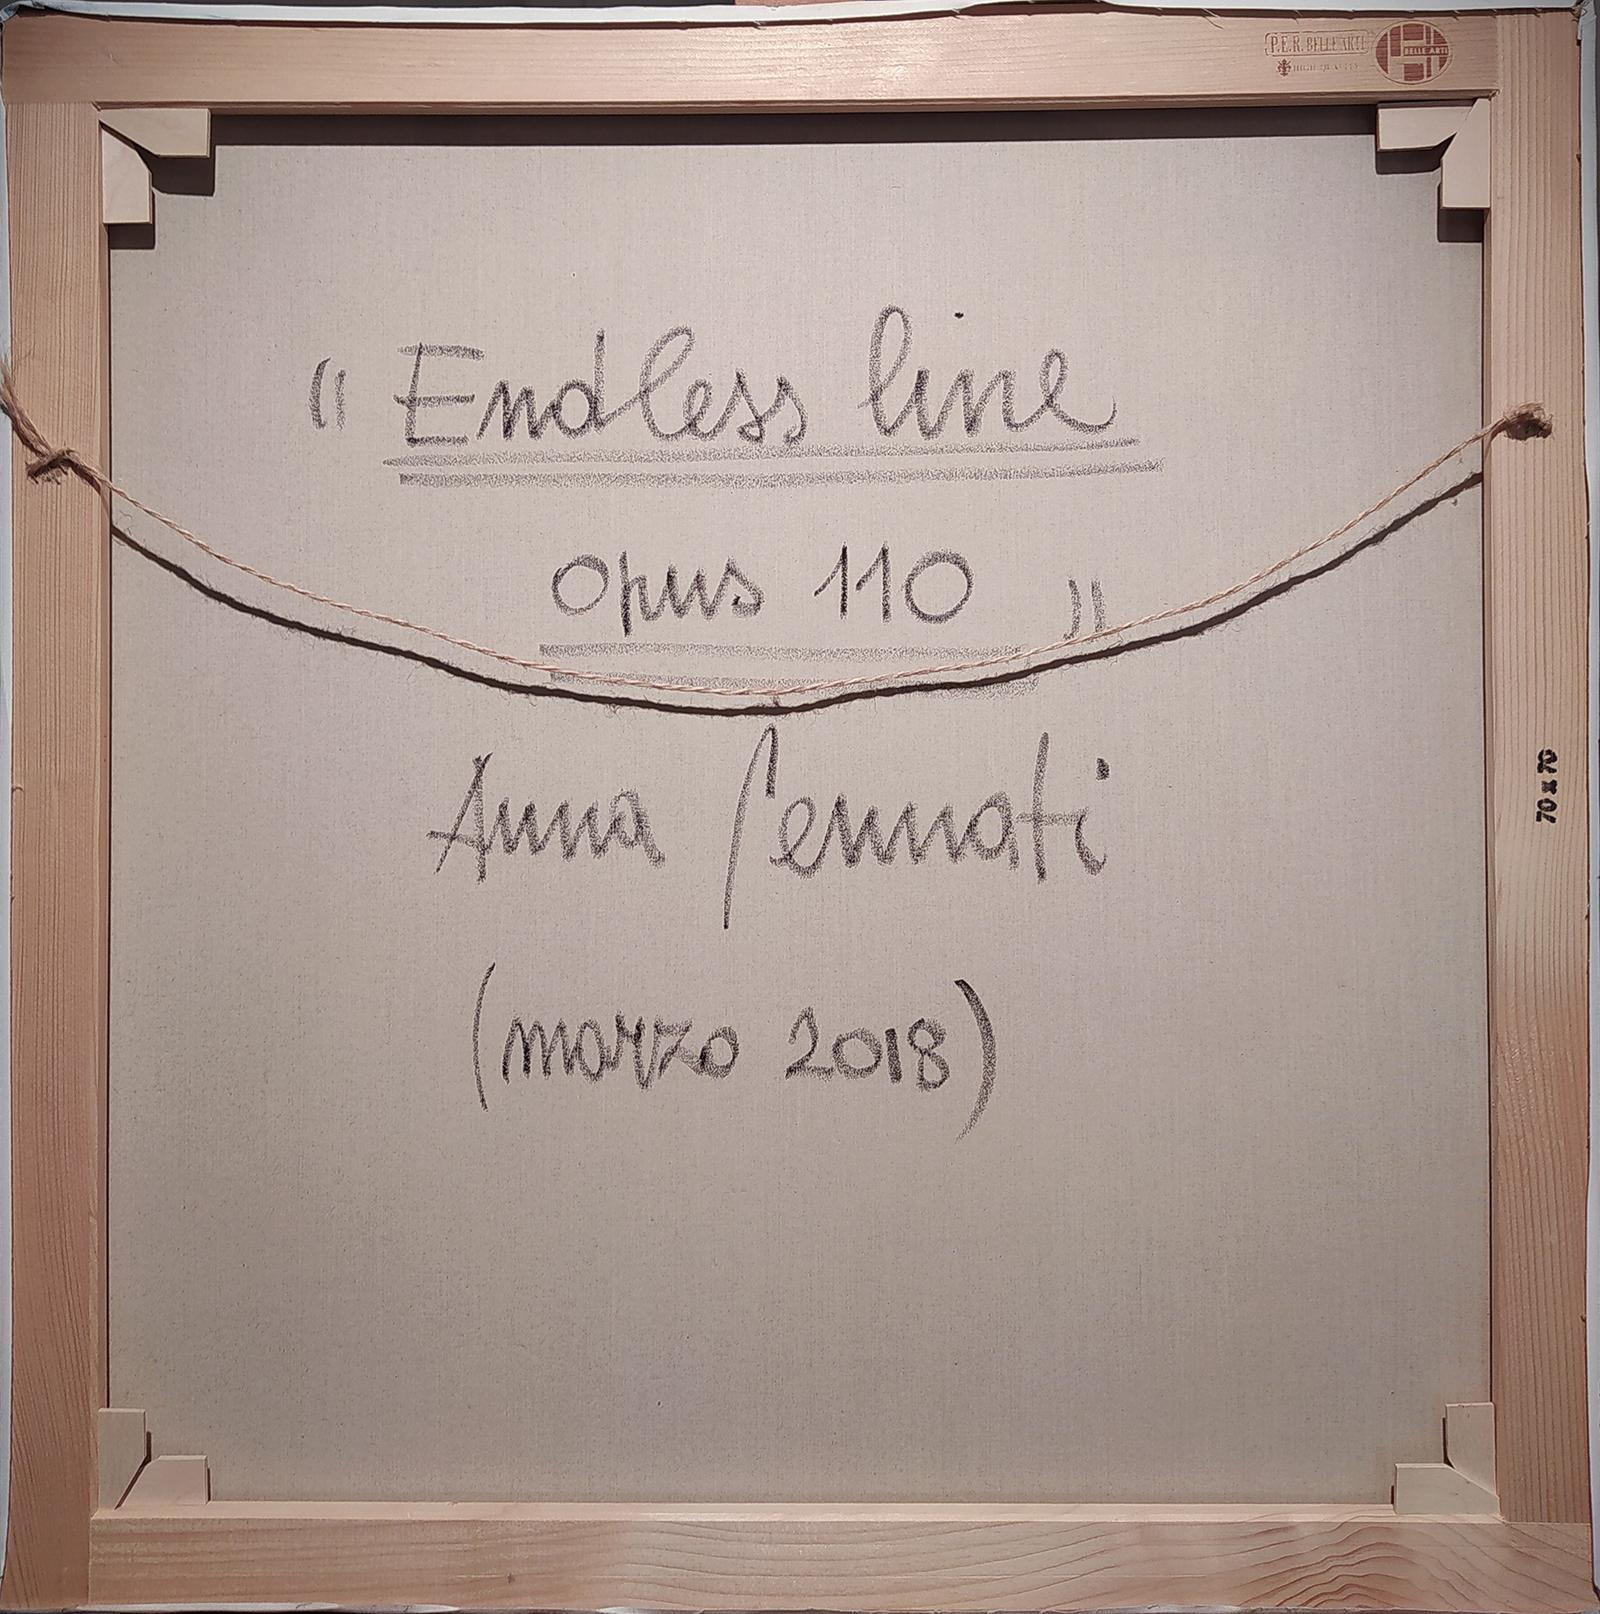 P.E.R. BELLE ARTI
HIGH QUALITY
BELLE ARTI
“ Endless line
opus 110 ”
Anna Pennati
(marzo 2018)
70 x 70